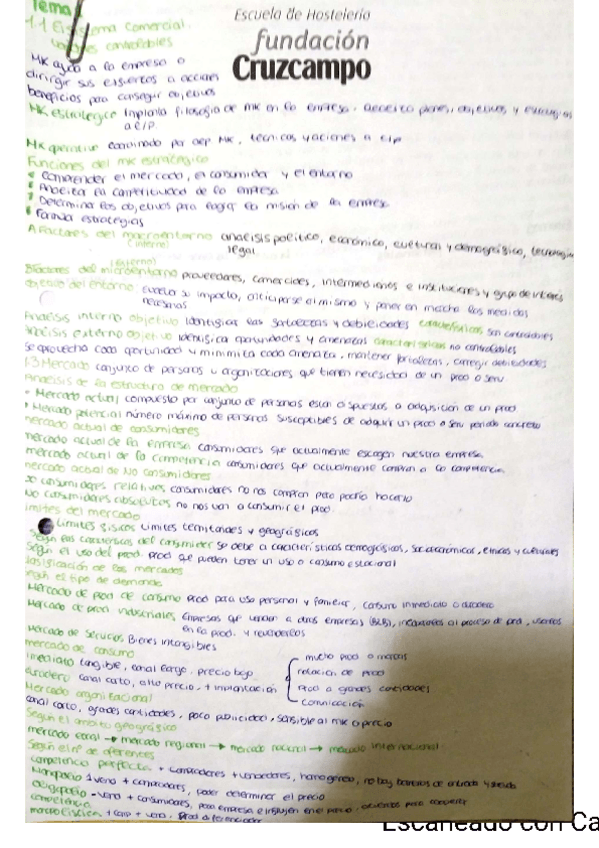 Tema
Escuela de Hostelería
fundación
Cruzcampo
1.1 El sistema Comercial.
Variables controlables
MK ayuda a la empresa a
dirigir sus esfuerzos a acciones
beneficios para conseguir objetivos
MK estratégico Implanta filosofía de MK en la empresa. objetivos y
a l/p.
MK operativo coordinado por dep MK, técnicas y aciones a c/p
Funciones del MK estratégico
Comprender el mercado, el consumidor y el entorno
Analizar la competitividad de la empresa
Determinar los objetivos para lograr la misión de la empresa
Formular estrategias
A Factores del macroentorno analisis político, económico, cultural y demográfico, tecnologico
(interno) legal
(externo)
B Factores del microentorno proveedores, comerciales, intermediarios e instituciones y grupo de interés
del entorno evalua su impacto, anticiparse al mismo y poner en marcha las medidas
necesarias
Analisis interno objetivo Identifica las fortalezas y debilidades características son controlables
Analisis externo objetivo identifica oportunidades y amenazas características no controlables
Se aprovecha cada oportunidad y minimiza cada amenaza, mantener fortalezas, corregir debilidades
1.3 Mercado conjunto de personas u organizaciones que tienen necesidad de un prod o serv
Analisis de la estructura de mercado
• Mercado actual compuesto por conjunto de personas estan dispuestos a adquisición de un prod
• Mercado potencial número máximo de personas susceptibles de adquirir un prod o serv periodo concreto
mercado actual de consumidores
mercado actual de la empresa consumidores que actualmente escogen nuestra empresa
mercado actual de la competencia consumidores que actualmente compran a la competencia
mercado actual de No consumidores
no consumidores relativos consumidores no nos compran pero podría hacerlo
No consumidores absolutos no nos van a consumir el prod.
limites del mercado
Limites fisicos limites territoriales y geográficos
Según las características del consumidor se debe a características demográficas, socioeconómicas, etnicas y culturales
Según el uso del prod. prod que pueden tener un uso o consumo estacional
clasificación de los mercados
según el tipo de demanda
Mercado de prod de consumo prod para uso personal y familiar, consumo inmediato o duradero
Mercado de prod industriales Empresas que venden a otras empresas (B2B), incorporarlos al proceso de prod, usarlos
en la prod. y revenderlos
Mercado de servicios Bienes intangibles
mercado de consumo
inmediato tangible, canal largo, precio bajo
duradero canal corto, alto precio, + implantación
mucho prod o marcas
rotación de prod
Prod a grandes cantidades
Comunicación
Mercado organizacional
canal corto, grandes cantidades, poca publicidad, sensible al precio
Según el ambito geográfico
mercado local → mercado regional → mercado nacional → mercado internacional
Según el nº de oferentes
competencia perfecta + compradores + vendedores, homogéneo, no hay barreras de entrada y salida
Monopolio 1 vend + compradores, poder determinar el precio
Oligopolio - vend + consumidores, poca empresa e influyen en el precio
competencia
monopolistica + comp + vend. prod diferenciador
Escaneado con Ca